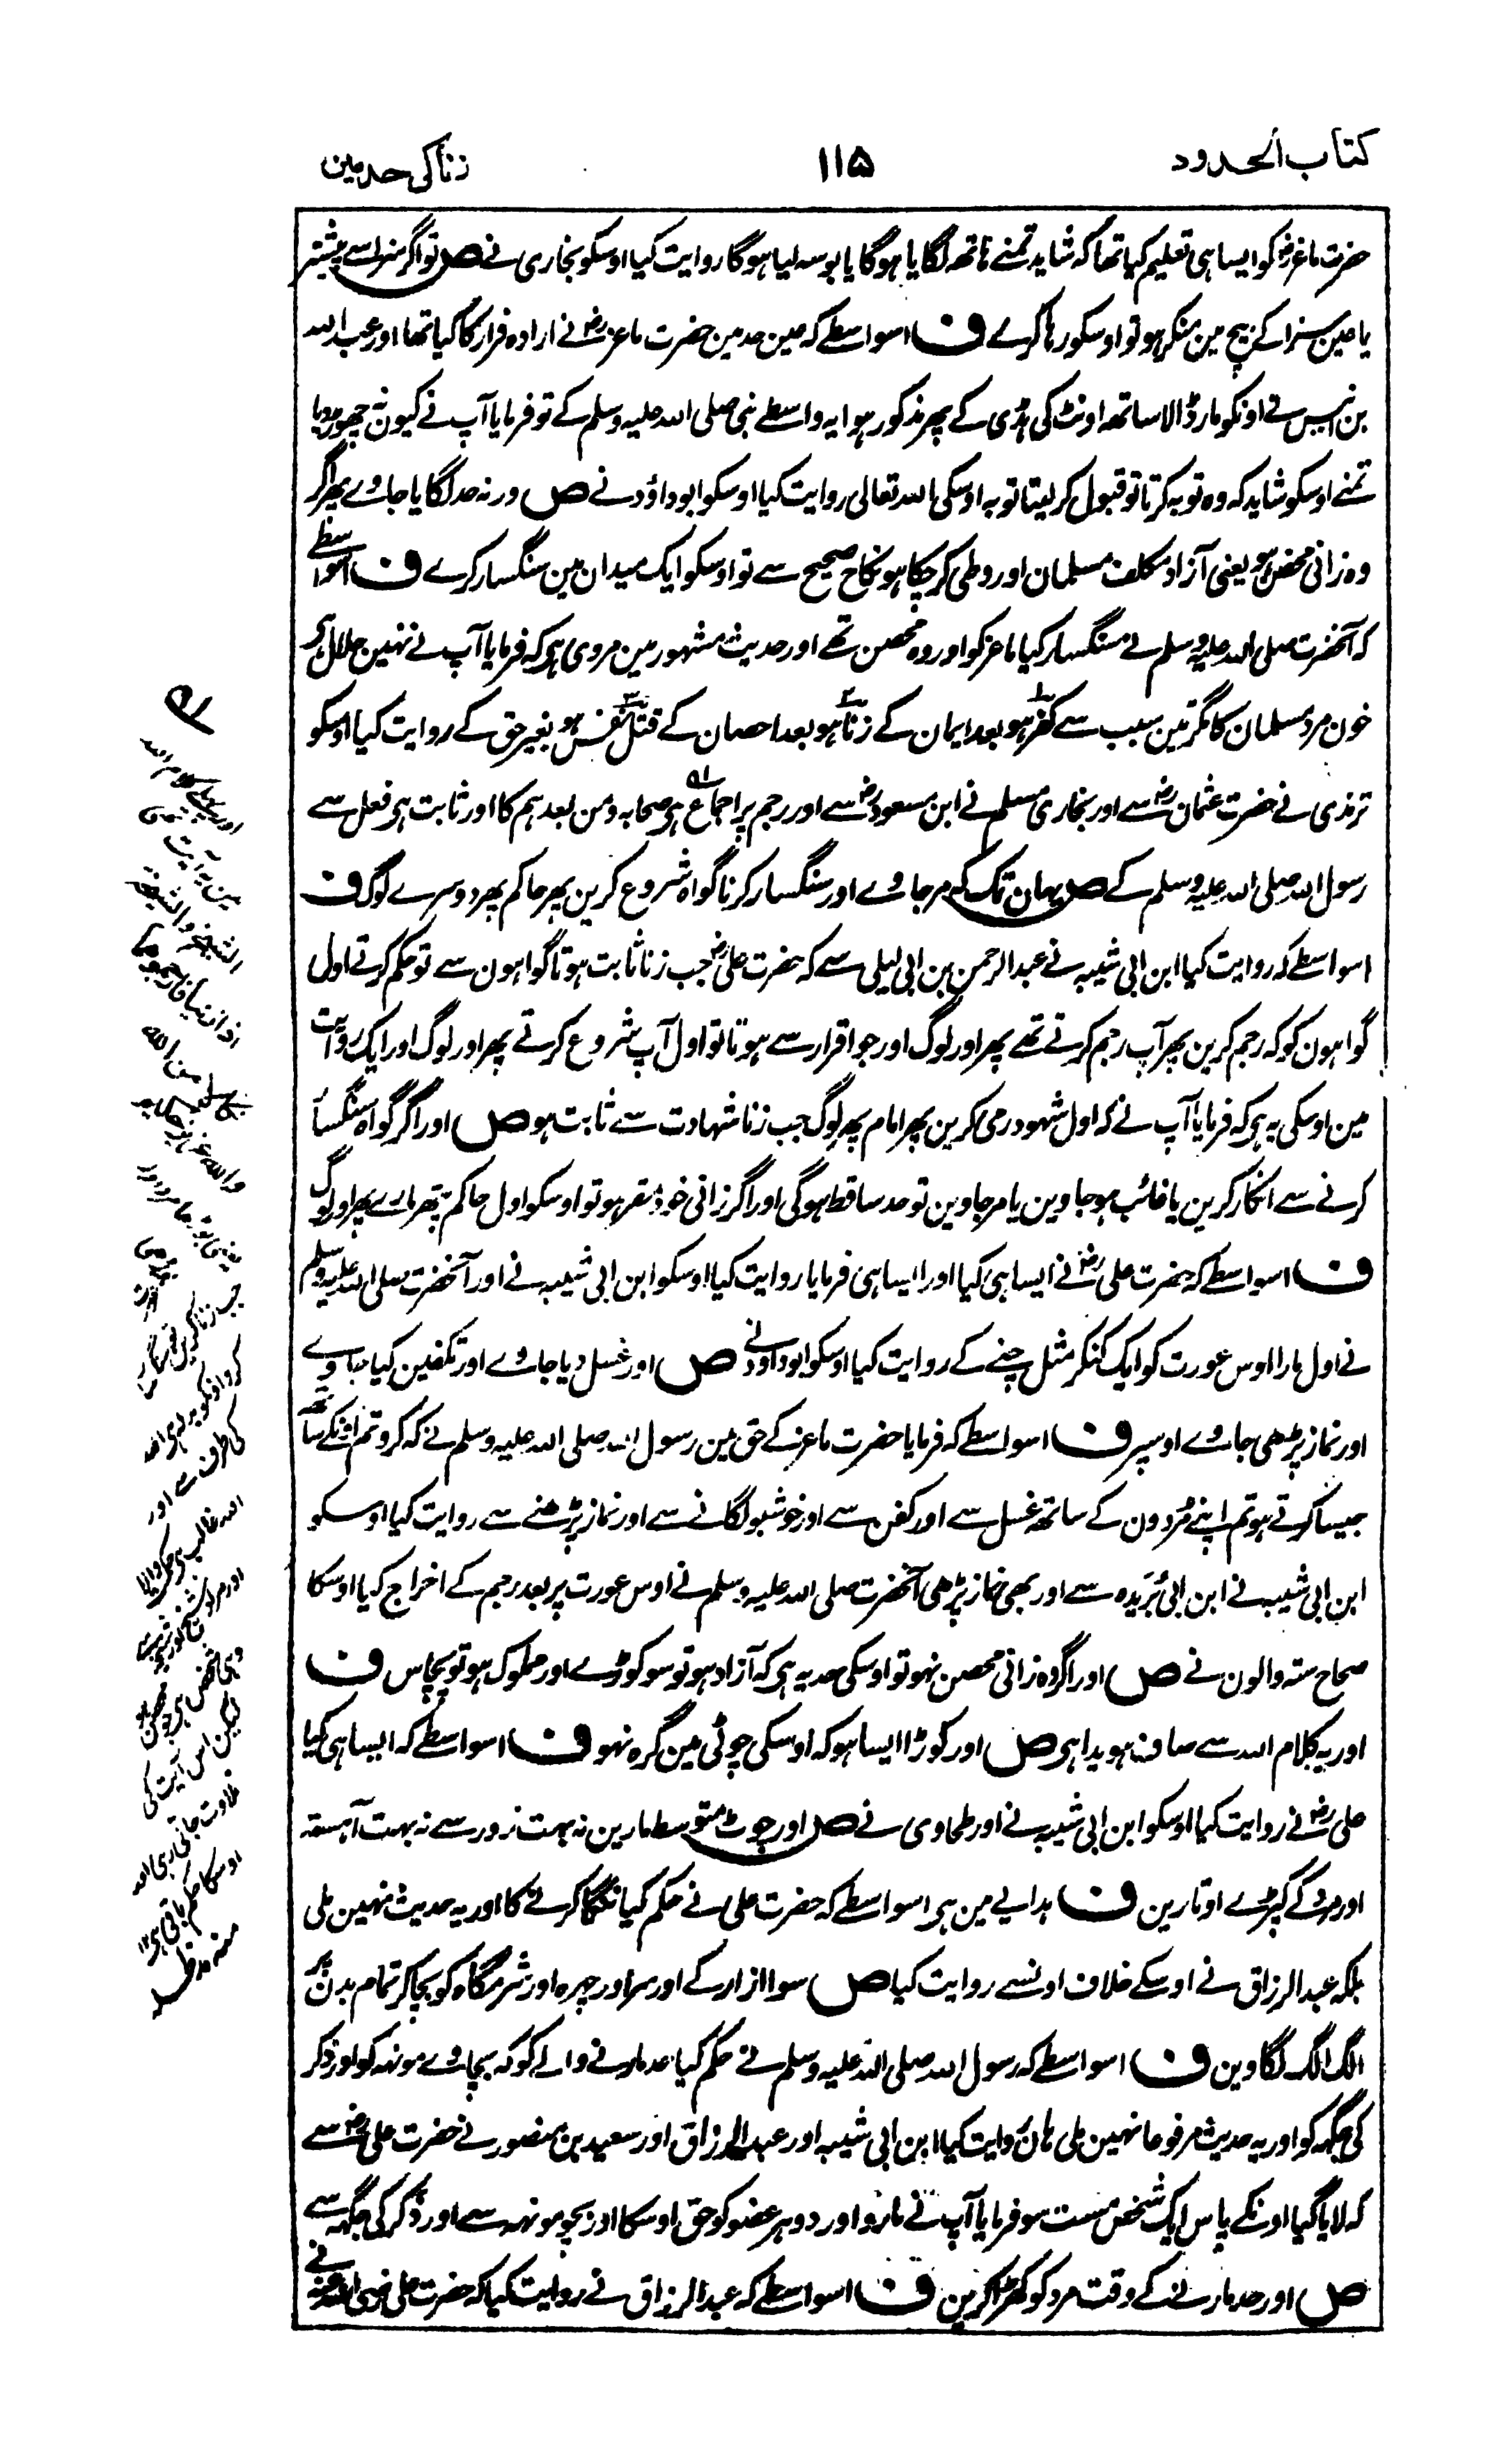 کتاب الحدود
۱۱۵
زنا کی حد مین
حضرت ماعز رض کو ایسا ہی تعلیم کیا تھا کہ شاید تمنے ہاتھ لگایا ہوگا یا بوسہ لیا ہوگا روایت کیا اوسکو بخاری نے ص تو اگر سزا سے پیشتر
یا عین سزا کے بیچ مین منکر ہو تو اوسکو رہا کرے ف اسواسطے کہ عین حد مین حضرت ماعز رض نے ارادہ فرار کا کیا تھا اور عبد اللہ
بن انیس نے اونکو مار ڈالا ساتھ اونٹ کی ہڈی کے پھر مذکور ہوا یہ واسطے نبی صلی اللہ علیہ وسلم کے تو فرمایا آپ نے کیون نہ چھوڑ دیا
تمنے اوسکو شاید کہ وہ توبہ کرتا تو قبول کر لیتا توبہ اوسکی اللہ تعالی روایت کیا اوسکو ابو داؤد نے ص ورنہ حد لگایا جاوے پھر اگر
وہ زانی محصن ہو یعنی آزاد مکلف مسلمان اور وطی کر چکا ہو نکاح صحیح سے تو اوسکو ایک میدان مین سنگسار کرے ف اسواسطے
کہ آنحضرت صلی اللہ علیہ وسلم نے سنگسار کیا ماعز کو اور وہ محصن تھے اور حدیث مشہور مین مروی ہی کہ فرمایا آپ نے نہین حلال ہی
خون مرد مسلمان کا مگر تین سبب سے کفر ہو بعد ایمان کے زنا ہو بعد احصان کے قتل نفس ہو بغیر حق کے روایت کیا اوسکو
ترمذی نے حضرت عثمان رض سے اور بخاری مسلم نے ابن مسعود رض سے اور رجم پر اجماع ہی صحابہ ومن بعد ہم کا اور ثابت ہی فعل سے
رسول اللہ صلی اللہ علیہ وسلم کے ص یہان تک کہ مر جاوے اور سنگسار کرنا گواہ شروع کرین پھر حاکم پھر دوسرے لوگ ف
اسواسطے کہ روایت کیا ابن ابی شیبہ نے عبد الرحمن بن ابی لیلی سے کہ حضرت علی رض جب زنا ثابت ہوتا گواہون سے تو حکم کرتے اول
گواہون کو کہ رجم کرین پھر آپ رجم کرتے تھے پھر اور لوگ اور جو اقرار سے ہوتا تو اول آپ شروع کرتے پھر اور لوگ اور ایک روایت
مین اوسکی یہ ہی کہ فرمایا آپ نے کہ اول شہود رمی کرین پھر امام پھر لوگ جب زنا شہادت سے ثابت ہو ص اور اگر گواہ سنگسار
کرنے سے انکار کرین یا غائب ہو جاوین یا مر جاوین تو حد ساقط ہوگی اور اگر زانی خود مقر ہو تو اوسکو اول حاکم پتھر مارے پھر اور لوگ
ف اسواسطے کہ حضرت علی رض نے ایسا ہی کیا اور ایسا ہی فرمایا روایت کیا اوسکو ابن ابی شیبہ نے اور آنحضرت صلی اللہ علیہ وسلم
نے اول مارا اوس عورت کو ایک کنکر مثل چنے کے روایت کیا اوسکو ابو داود نے ص اور غسل دیا جاوے اور تکفین کیا جاوے
اور نماز پڑھی جاوے اوسپر ف اسواسطے کہ فرمایا حضرت ماعز کے حق مین رسول اللہ صلی اللہ علیہ وسلم نے کہ کرو تم اونکے ساتھ
جیسا کرتے ہو تم اپنے مُردون کے ساتھ غسل سے اور کفن سے اور خوشبو لگانے سے اور نماز پڑھنے سے روایت کیا اوسکو
ابن ابی شیبہ نے ابن ابی بُرَیدہ سے اور بھی نماز پڑھی آنحضرت صلی اللہ علیہ وسلم نے اوس عورت پر بعد رجم کے اخراج کیا اوسکا
صحاح ستہ والون نے ص اور اگر وہ زانی محصن نہو تو اوسکی حد یہ ہی کہ آزاد ہو تو سو کوڑے اور مملوک ہو تو پچاس ف
اور یہ کلام اللہ سے صاف ہویدا ہی ص اور کوڑا ایسا ہو کہ اوسکی چوٹی مین گرہ نہو ف اسواسطے کہ ایسا ہی کیا
علی رض نے روایت کیا اوسکو ابن ابی شیبہ نے اور طحاوی نے ص اور چوٹ متوسط مارین نہ بہت زور سے نہ بہت آہستہ
اور مرد کے کپڑے اوتارین ف ہدایے مین ہی اسواسطے کہ حضرت علی نے حکم کیا ننگا کرنے کا اور یہ حدیث نہین ملی
بلکہ عبد الرزاق نے اوسکے خلاف اونسے روایت کیا ص سوا ازار کے اور سر اور چہرہ اور شرمگاہ کو بچا کر تمام بدن پر
الگ الگ لگاوین ف اسواسطے کہ رسول اللہ صلی اللہ علیہ وسلم نے حکم کیا حد مارنے والے کو کہ بچاوے مونہہ کو اور ذکر
کی جگہہ کو اور یہ حدیث مرفوعا نہین ملی ہان روایت کیا ابن ابی شیبہ اور عبد الرزاق اور سعید بن منصور نے حضرت علی رض سے
کہ لایا گیا اونکے پاس ایک شخص مست سو فرمایا آپ نے مارو اور دو ہر عضو کو حق اوسکا اور بچو مونہہ سے اور ذکر کی جگہہ سے
ص اور حد مارنے کے وقت مرد کو کھڑا کرین ف اسواسطے کہ عبد الرزاق نے روایت کیا کہ حضرت علی رضی اللہ عنہ نے
مین یہ آیت
الشیخ والشیخۃ
اذا زنیا فارجموهما
من اللہ
جب زنا کرین تو سنگسار
کرو اونکو بدلہ ہی اللہ
کی طرف سے اور
اللہ غالب ہی حکمت والا
وہی شخص ہی جو محصن ہو
لیکن اس آیت کی
تلاوت جاتی رہی اور
اوسکا حکم باقی ہی ۱۲
منہ مد ظلہ